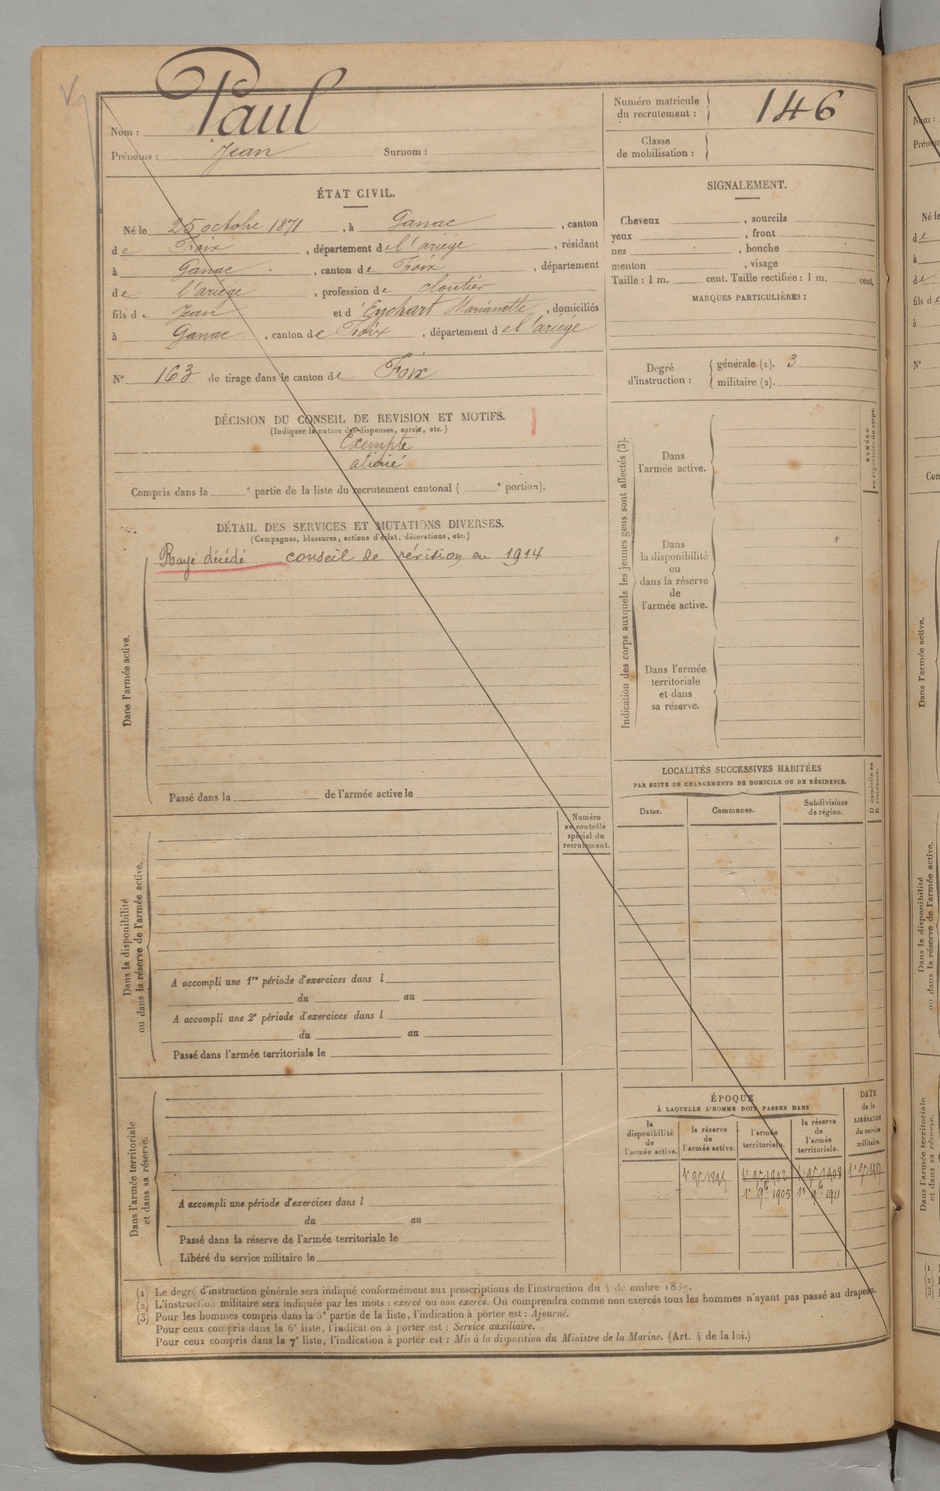 Nom : Paul
Prénoms : Jean Surnom :
Numéro matricule du recrutement : 146
Classe de mobilisation :
ÉTAT CIVIL.
Né le 25 octobre 1871, à Ganac, canton
de Foix, département de l'ariège, résidant
à Ganac, canton de Foix, département
de l'ariège, profession de cloutier
fils de Jean et d'Eychart Marianotte, domiciliés
à Ganac, canton de Foix, département de l'ariège
N° 163 de tirage dans le canton de Foix
DÉCISION DU CONSEIL DE REVISION ET MOTIFS.
(Indiquer la nature des dispenses, sursis, etc.)
Exempté
aliéné
Compris dans la e partie de la liste du recrutement cantonal ( e portion).
DÉTAIL DES SERVICES ET MUTATIONS DIVERSES.
(Campagnes, blessures, actions d'éclat, décorations, etc.)
Dans l'armée active.
Rayé décédé conseil de révision en 1914
Passé dans la de l'armée active le
Numéro au contrôle spécial du recrutement.
Dans la disponibilité ou dans la réserve de l'armée active.
A accompli une 1re période d'exercices dans l
du au
A accompli une 2e période d'exercices dans l
du au
Passé dans l'armée territoriale le
Dans l'armée territoriale et dans sa réserve.
A accompli une période d'exercices dans l
du au
Passé dans la réserve de l'armée territoriale le
Libéré du service militaire le
SIGNALEMENT.
Cheveux , sourcils
yeux , front
nez , bouche
menton , visage
Taille : 1 m. cent. Taille rectifiée : 1 m. cent.
MARQUES PARTICULIÈRES :
Degré d'instruction : générale (1). 3
militaire (2).
Indication des corps auxquels les jeunes gens sont affectés (3).
Dans l'armée active.
Dans la disponibilité ou dans la réserve de l'armée active.
Dans l'armée territoriale et dans sa réserve.
NUMÉRO au répertoire du corps.
LOCALITÉS SUCCESSIVES HABITÉES
PAR SUITE DE CHANGEMENTS DE DOMICILE OU DE RÉSIDENCE.
Dates. Communes. Subdivisions de région. D domicile ou R résidence.
ÉPOQUE
À LAQUELLE L'HOMME DOIT PASSER DANS
la disponibilité de l'armée active.
la réserve de l'armée active.
l'armée territoriale.
la réserve de l'armée territoriale.
DATE de la LIBÉRATION du service militaire.
1er 9bre 1902 1er 9bre 1908
1er 9bre 1905 1er 9bre 1911
(1) Le degré d'instruction générale sera indiqué conformément aux prescriptions de l'instruction du
(2) L'instruction militaire sera indiquée par les mots : exercé ou non exercé. On comprendra comme non exercés tous les hommes n'ayant pas passé au drapeau.
(3) Pour les hommes compris dans la 5e partie de la liste, l'indication à porter est : Ajourné.
Pour ceux compris dans la 6e liste, l'indication à porter est : Service auxiliaire.
Pour ceux compris dans la 7e liste, l'indication à porter est : Mis à la disposition du Ministre de la Marine. (Art. 4 de la loi.)